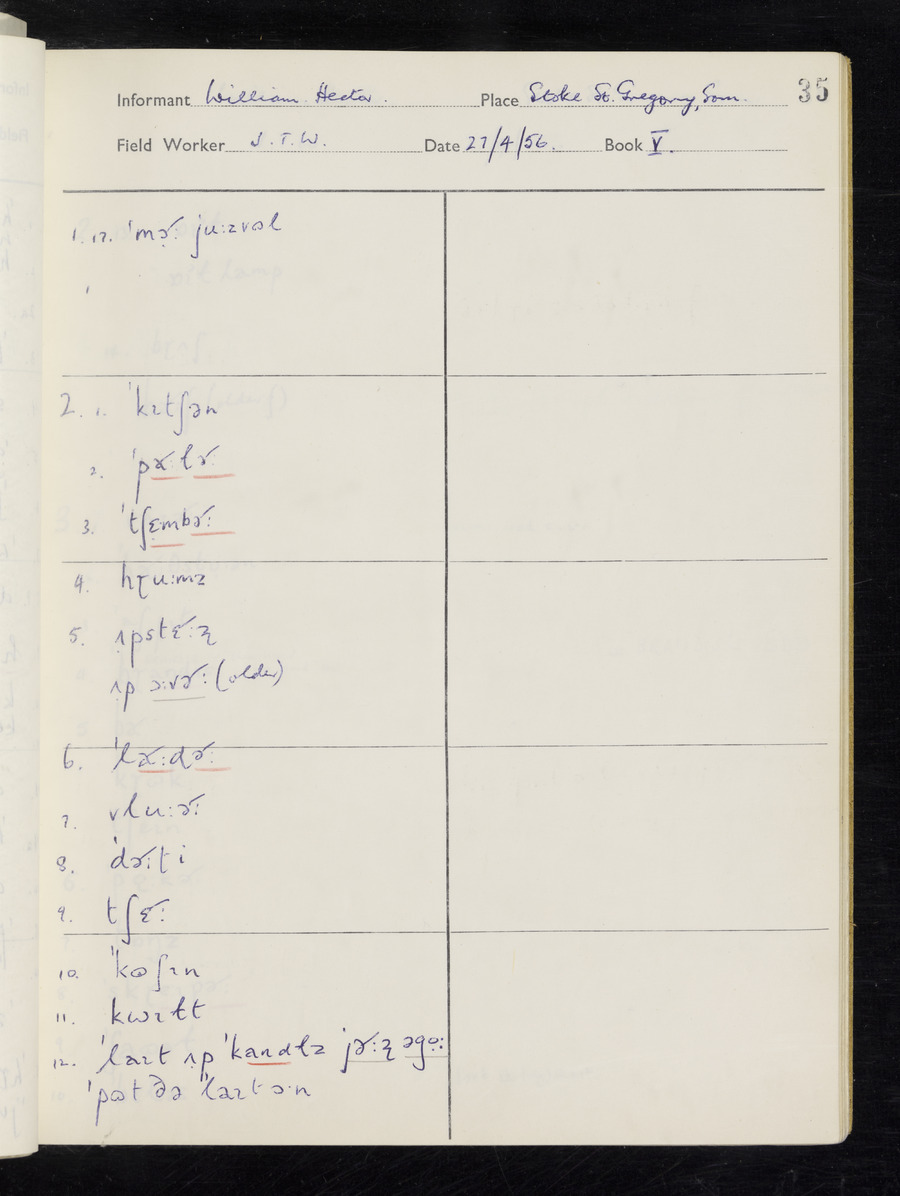 35
Informant William Hector. Place Stoke St. Gregory, Som.
Field Worker J. T. W. Date 27/4/56. Book V.
1. 12. ˈmɚ: ju:zvəl
2. 1. ˈkɪtʃən
2. ˈpɚ:lɚ
3. ˈtʃɛmbɚ:
4. hɽu:mz
5. ʌpstɛ˞:ʐ
ʌp ɔ:vɚ: (older)
6. ˈlɚ:dɚ:
7. vlu:ɚ:
8. ˈdɚ:ʈi
9. tʃɛ˞:
10. ˈkɷʃɪn
11. kwɪɫt
12. ˈlaɪt ʌp ˈkandɫz ˈjɚ:ʐ əgo:
ˈpɷt ðə ˈlaɪt ɔ:n